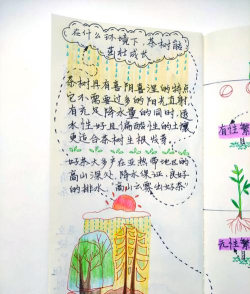 在什么环境下,茶树能
茁壮成长
茶树具有喜阴喜湿的特点
它不需要过多的阳光直射,
有充足降水量的同时,透
水性好且偏酸性的土壤
更适合茶树生根发芽。
好茶大多产在亚热带地区的
高山深处,降水保证,良好
的排水,“高山云雾出好茶”
有性繁
无性繁